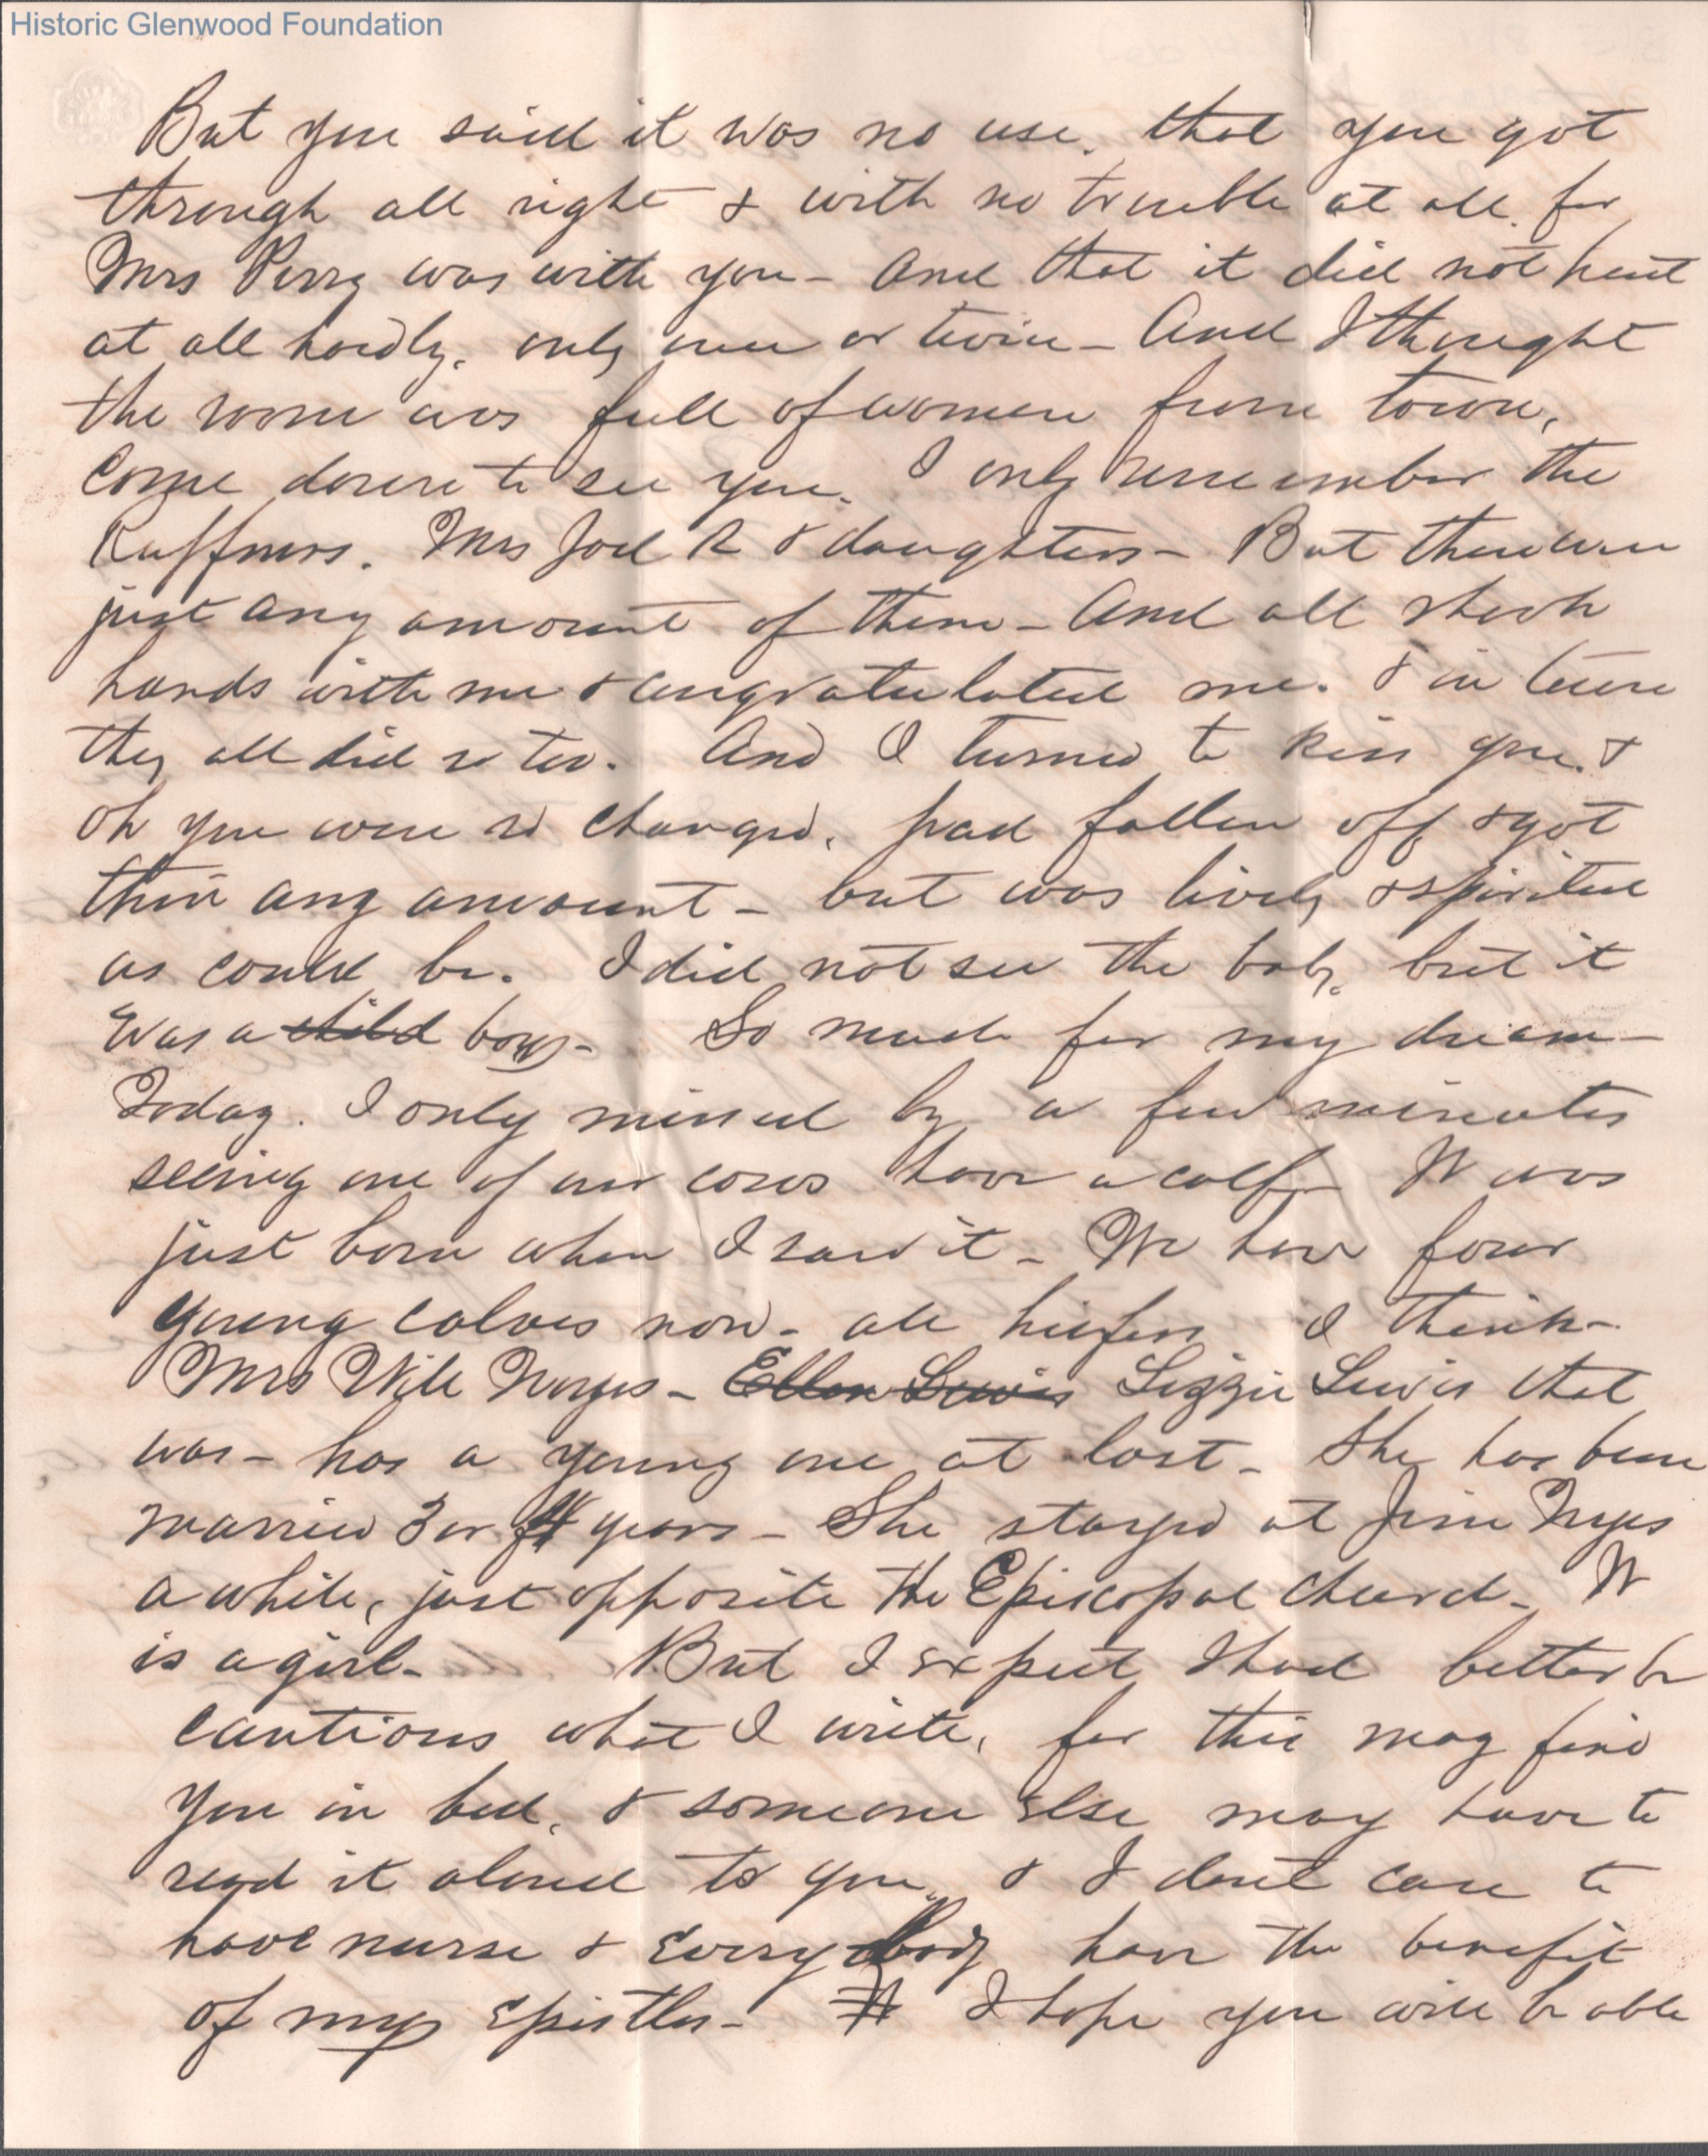 Historic Glenwood Foundation
But you said it was no use. that you got
through all right & with no trouble at all. for
Mrs Perry was with you - And that it did not hurt
at all hardly. only once or twice - And I thought
the room was full of women from town,
Come down to see you. I only remember the
Ruffners. Mrs Joel R & daughters - But there were
just any amount of them - And all shook
hands with me & congratulated me. & in turn
they all did so too. And I turned to kiss you. &
oh you were so changed. had fallen off & got
thin any amount - but was lively & spirited
as could be. I did not see the baby. but it
was a child boy - So much for my dream -
Today. I only missed by a few minutes
seeing one of our cows have a calf - It was
just born when I saw it - We have four
young calves now - all heifers I think -
Mrs Will Noyes - Ellen Lewis Lizzie Lewis that
was - has a young one at last - She has been
married 3 or 4 years - She stayed at Jim Noyes
a while, just opposite the Episcopal Church - It
is a girl - But I expect I had better be
cautious what I write, for this may find
you in bed, & someone else may have to
read it aloud to you, & I dont care to
have nurse & Everybody have the benefit
of my Epistles - It I hope you will be able